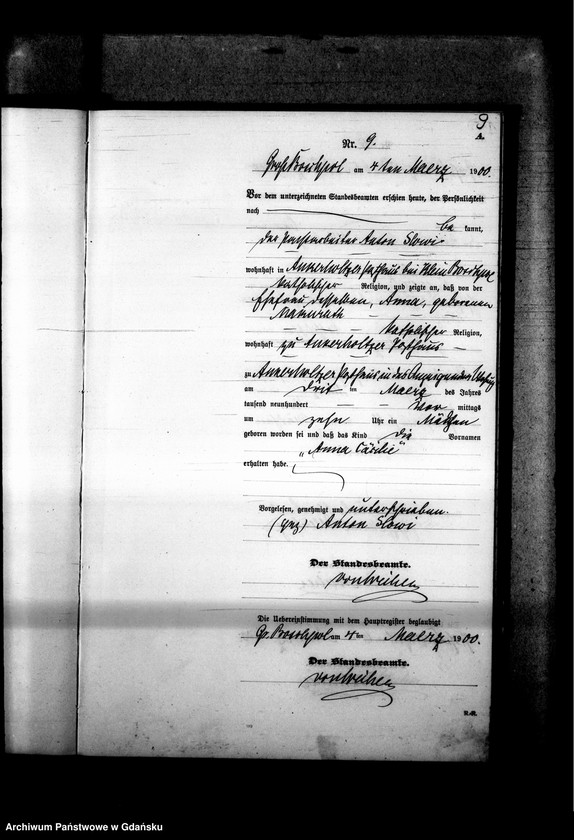 9
A.
Nr. 9.
Groß Boschpol am 4 ten Maerz 1900.
Vor dem unterzeichneten Standesbeamten erschien heute, der Persönlichkeit
nach
be kannt,
der Anton Slowi
wohnhaft in Ankerholtzer Forsthaus bei Klein Boschpol
katholischer Religion, und zeigte an, daß von der
Ehefrau desselben, Anna, geborenen
katholischer Religion,
wohnhaft zu Ankerholtzer Forsthaus
zu Ankerholtzer Forsthaus in des Anzeigenden Wohnung
am drit ten Maerz des Jahres
tausend neunhundert Vor mittags
um zehn Uhr ein Mädchen
geboren worden sei und daß das Kind die Vornamen
„Anna Cäcilie“
erhalten habe.
Vorgelesen, genehmigt und unterschrieben.
(gez) Anton Slowi
Der Standesbeamte.
Die Uebereinstimmung mit dem Hauptregister beglaubigt
Gr. Boschpol am 4 ten Maerz 1900.
Der Standesbeamte.
Archiwum Państwowe w Gdańsku